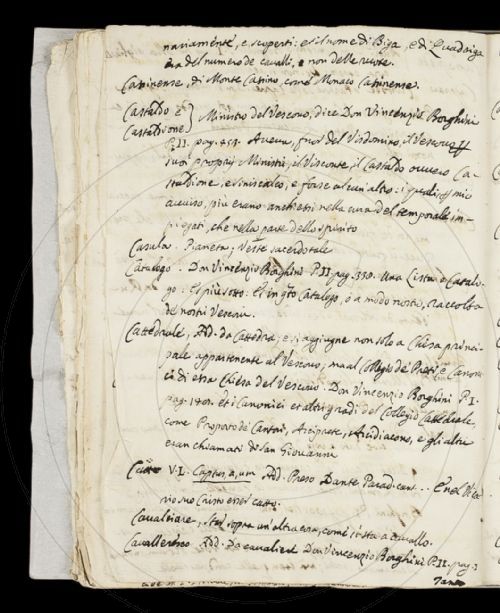 nariamente, e scoperti: e si il nome di Biga, e di Quadriga
era del numero de cavalli, e non delle ruote.
Casinense, di Monte Casino, come Monaco Casinense.
Castaldo e
Castaldione } Ministro del Vescovo, dice Don Vincenzio Borghini
P. II. pag. Aveva, fuor del Visdomino, il Vescovo
suoi proprij Ministri, il Visconte, il Castaldo ovvero Ca-
staldione, e forse alcun altro: i quali p mio
avviso, più erano anch'essi nella cura del temporale im-
piegati, che nella parte dello spirito
Casula. Pianeta, Veste sacerdotale
Catalogo. Don Vincenzio Borghini P. II pag. 330. Una Lista o Catalo-
go. E più sotto: E in qto Catalogo, ó a modo nostro, Raccolta
de nostri Vescovi.
Cattedrale, Ad. da Cattedra, e si aggiugne non solo a Chiesa princi-
pale appartenente al Vescovo, ma al Collegio de Preti e Canoni-
ci di essa Chiesa del Vescovo. Don Vincenzio Borghini P. I.
pag. Et i Canonici et altri gradi del Collegio Cattedrale,
come Proposto de Cantori, Arciprete, Arcidiacono, e gli altri
eran chiamati di San Giovanni
Casto V. L. Castus, a, um Ad. Preso Dante Parad.
Cristo esser casto.
Cavalciare, Star sopra un'altra cosa, come si sta a cavallo.
Cavalleresco Ad. Da cavaliere Don Vincenzio Borghini P. II. pag.